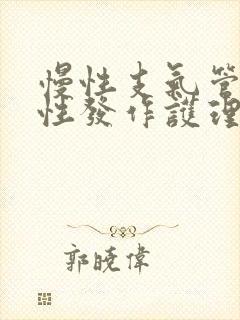 慢性支氣管
性發作護理
郭曉偉